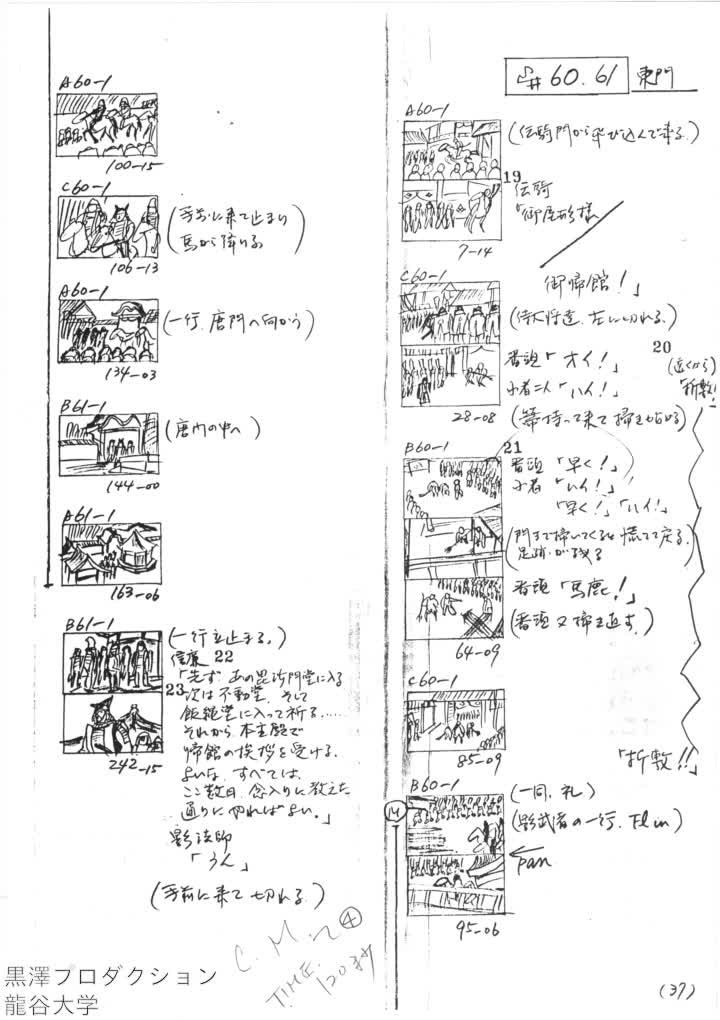 #60.61 東門
A60-1
(伝騎門から飛び込んで来る)
19
伝騎
「御屋形様
7-14
御帰館!」
C60-1
(侍大将達、左に切れる)
番頭「オイ!」
20
小者二人「ハイ!」
(遠くから)
「折敷!
(箒持って来て掃き始める)
28-08
B60-1
21
番頭「早く!」
小者「ハイ!」
「早く!」「ハイ!」
(門まで掃いてくると慌てて戻る、
足跡が残る
番頭「馬鹿!」
(番頭又掃き直す)
64-09
C60-1
85-09
「折敷!!」
B60-1
(一同、礼)
(影武者の一行、FI in)
14
pan
95-06
(37)
A60-1
100-15
C60-1
(手前に来て止まり
馬から降りる)
106-13
A60-1
(一行、唐門へ向かう)
134-03
B61-1
(唐門の中へ)
144-00
A61-1
163-06
B61-1
(一行立止まる。)
信廉 22
「先ず、あの毘沙門堂に入る
23
次は不動堂、そして
飯縄堂に入って祈る……
それから、本主殿で
帰館の挨拶を受ける、
よいな、すべては、
ここ数日、念入りに教えた
通りにやればよい。」
242-15
影法師
「うん」
(手前に来て切れる)
C.M.
④
TIME.
黒澤プロダクション
龍谷大学